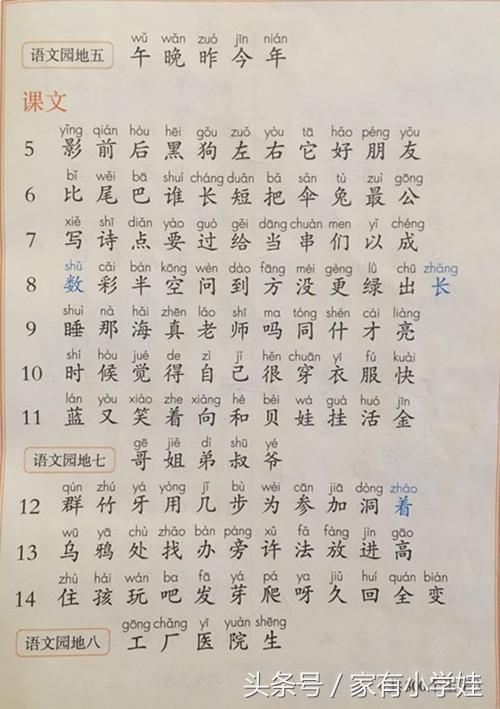 wǔ wǎn zuó jīn nián
语文园地五 午 晚 昨 今 年
课文
yǐng qián hòu hēi gǒu zuǒ yòu tā hǎo péng yǒu
5 影 前 后 黑 狗 左 右 它 好 朋 友
bǐ wěi bā shuí cháng duǎn bǎ sǎn tù zuì gōng
6 比 尾 巴 谁 长 短 把 伞 兔 最 公
xiě shī diǎn yào guò gěi dāng chuàn men yǐ chéng
7 写 诗 点 要 过 给 当 串 们 以 成
shǔ cǎi bàn kōng wèn dào fāng méi gèng lǜ chū zhǎng
8 数 彩 半 空 问 到 方 没 更 绿 出 长
shuì nà hǎi zhēn lǎo shī ma tóng shén cái liàng
9 睡 那 海 真 老 师 吗 同 什 才 亮
shí hòu jué de zì jǐ hěn chuān yī fú kuài
10 时 候 觉 得 自 己 很 穿 衣 服 快
lán yòu xiào zhe xiàng hé bèi wá guà huó jīn
11 蓝 又 笑 着 向 和 贝 娃 挂 活 金
gē jiě dì shū yé
语文园地七 哥 姐 弟 叔 爷
qún zhú yá yòng jǐ bù wèi cān jiā dòng zháo
12 群 竹 牙 用 几 步 为 参 加 洞 着
wū yā chù zhǎo bàn páng xǔ fǎ fàng jìn gāo
13 乌 鸦 处 找 办 旁 许 法 放 进 高
zhù hái wán ba fā yá pá ya jiǔ huí quán biàn
14 住 孩 玩 吧 发 芽 爬 呀 久 回 全 变
gōng chǎng yī yuàn shēng
语文园地八 工 厂 医 院 生
头条号 / 家有小学娃